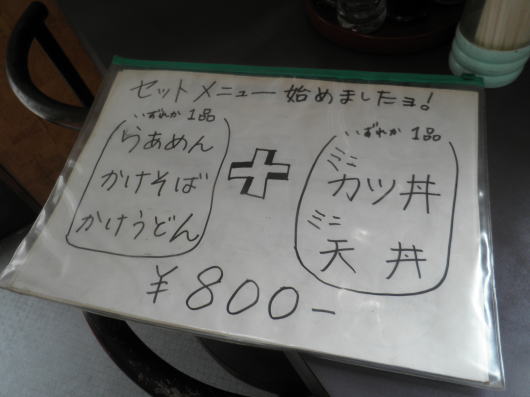 セットメニュー始めましたョ!
いずれか1品
らあめん
かけそば
かけうどん
+
いずれか1品
ミニ
カツ丼
ミニ
天丼
¥800-